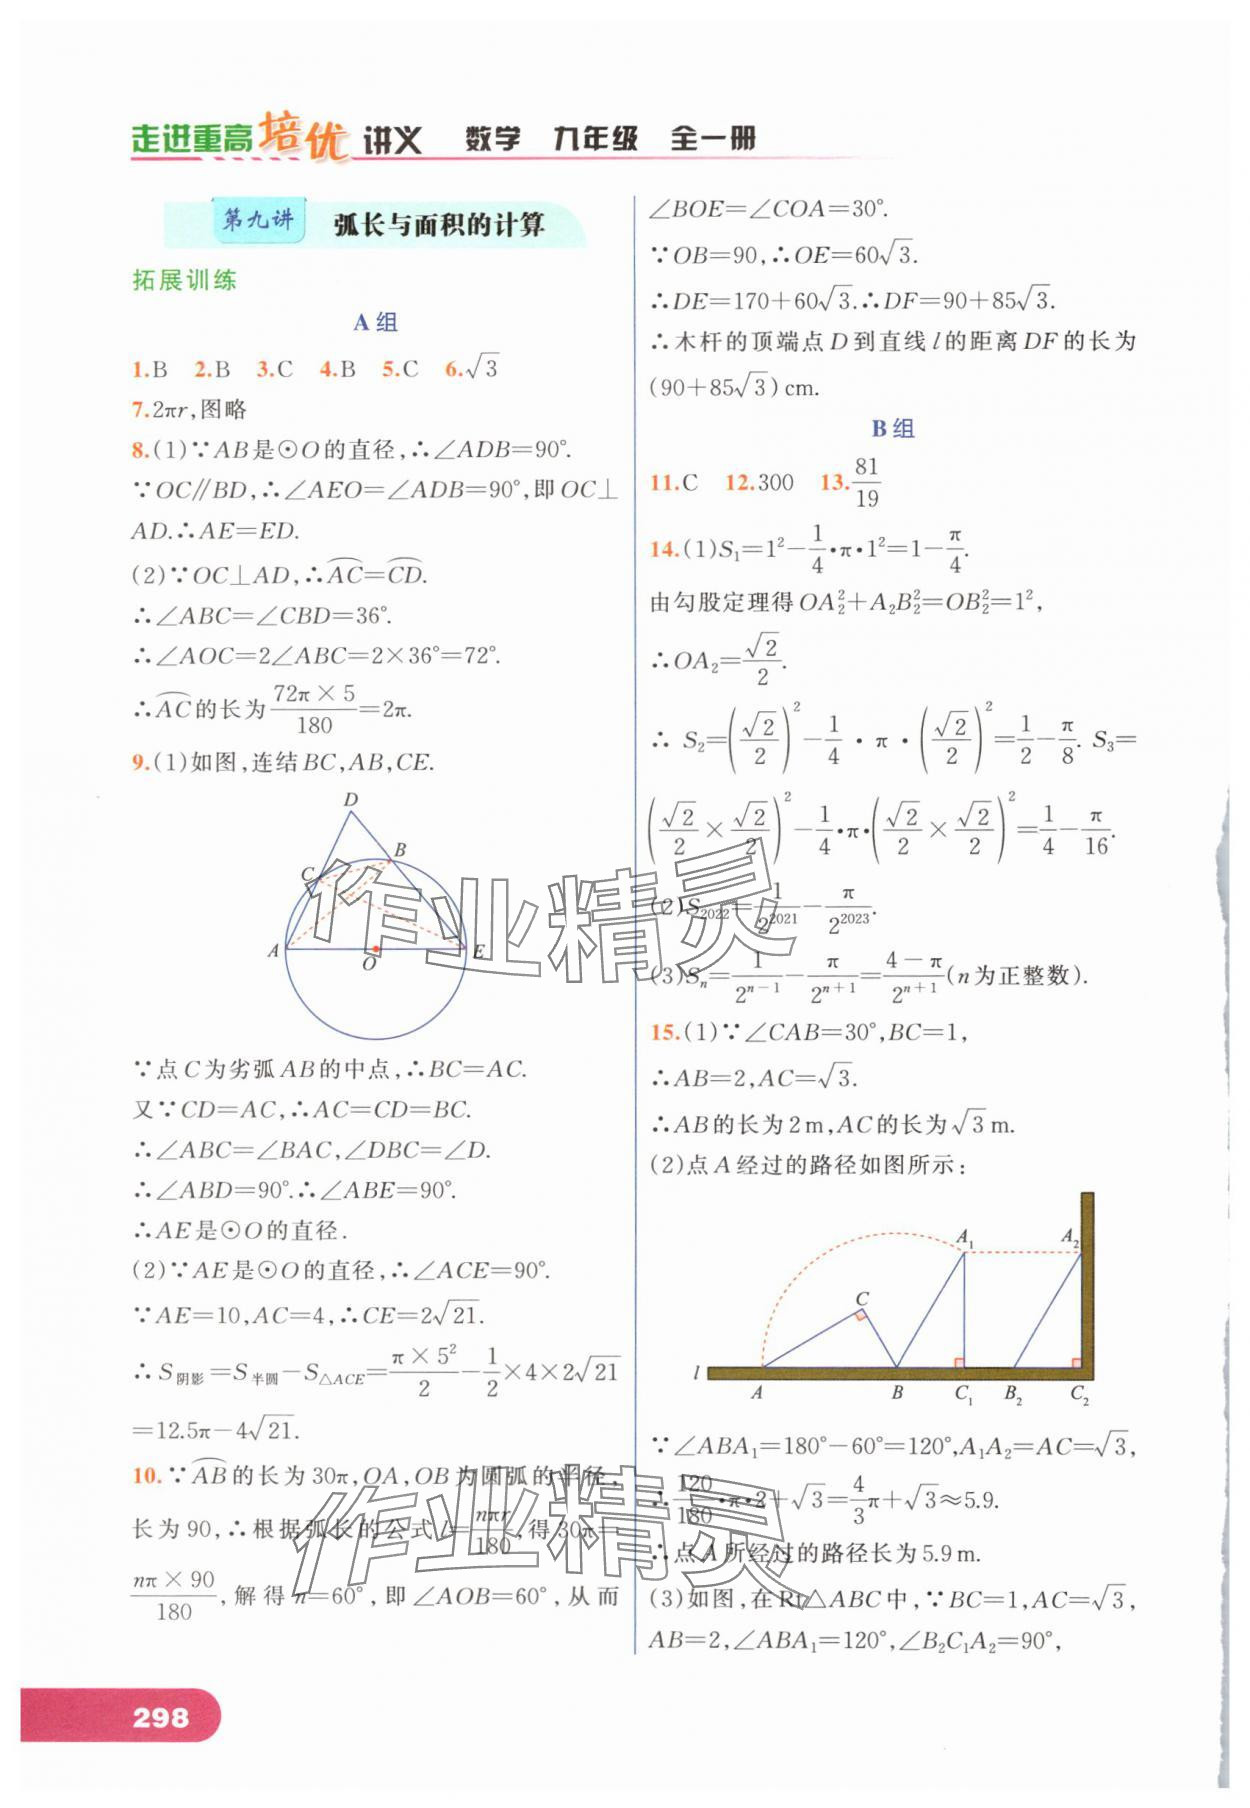 走进重高培优讲义 数学 九年级 全一册
第九讲 弧长与面积的计算
拓展训练
A组
1.B 2.B 3.C 4.B 5.C 6.√3
7.2πr,图略
8.(1)∵AB是⊙O的直径,∴∠ADB=90°.
∵OC∥BD,∴∠AEO=∠ADB=90°,即OC⊥
AD.∴AE=ED.
(2)∵OC⊥AD,∴⌒AC=⌒CD.
∴∠ABC=∠CBD=36°.
∴∠AOC=2∠ABC=2×36°=72°.
∴⌒AC的长为(72π×5)/180=2π.
9.(1)如图,连结BC,AB,CE.
D
B
C
A
O
E
∵点C为劣弧AB的中点,∴BC=AC.
又∵CD=AC,∴AC=CD=BC.
∴∠ABC=∠BAC,∠DBC=∠D.
∴∠ABD=90°.∴∠ABE=90°.
∴AE是⊙O的直径.
(2)∵AE是⊙O的直径,∴∠ACE=90°.
∵AE=10,AC=4,∴CE=2√21.
∴S阴影=S半圆-S△ACE=(π×5²)/2-1/2×4×2√21
=12.5π-4√21.
10.∵⌒AB的长为30π,OA,OB为圆弧的半径,
长为90,∴根据弧长的公式l=nπr/180,得30π=
(nπ×90)/180,解得n=60°,即∠AOB=60°,从而
∠BOE=∠COA=30°.
∵OB=90,∴OE=60√3.
∴DE=170+60√3.∴DF=90+85√3.
∴木杆的顶端点D到直线l的距离DF的长为
(90+85√3)cm.
B组
11.C 12.300 13.81/19
14.(1)S₁=1²-1/4•π•1²=1-π/4.
由勾股定理得OA₂²+A₂B₂²=OB₂²=1²,
∴OA₂=√2/2.
∴S₂=(√2/2)²-1/4•π•(√2/2)²=1/2-π/8. S₃=
(√2/2×√2/2)²-1/4•π•(√2/2×√2/2)²=1/4-π/16.
(2)S₂₀₂₂=1/2²⁰²¹-π/2²⁰²³.
(3)Sₙ=1/2ⁿ⁻¹-π/2ⁿ⁺¹=(4-π)/2ⁿ⁺¹(n为正整数).
15.(1)∵∠CAB=30°,BC=1,
∴AB=2,AC=√3.
∴AB的长为2m,AC的长为√3m.
(2)点A经过的路径如图所示:
A₁ A₂
C
l
A B C₁ B₂ C₂
∵∠ABA₁=180°-60°=120°,A₁A₂=AC=√3,
∴120/180•π•2+√3=4/3π+√3≈5.9.
∴点A所经过的路径长为5.9m.
(3)如图,在Rt△ABC中,∵BC=1,AC=√3,
AB=2,∠ABA₁=120°,∠B₂C₁A₂=90°,
298
作业精灵
作业精灵